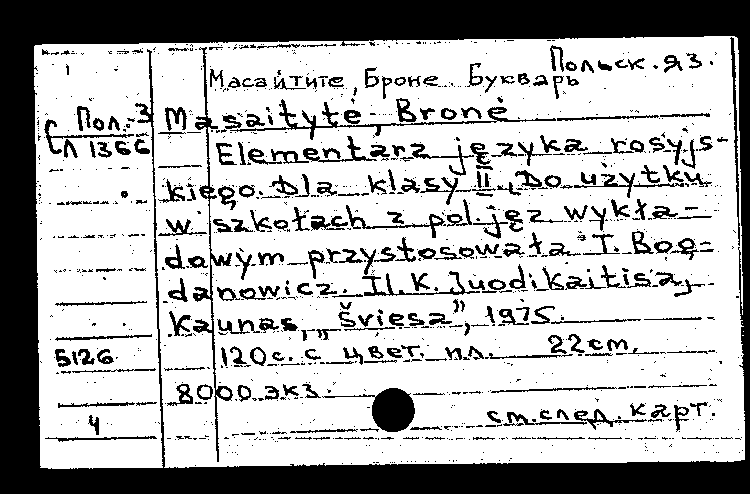 Польск. яз.
Масайтите, Броне. Букварь
Пол.-3 Masaitytė, Bronė
Л 1366 Elementarz języka rosyjs-
kiego. Dla klasy II. Do użytku
w szkołach z pol. jęz. wykła-
dowym przystosowała T. Bog-
danowicz. Il. K. Juodikaitisa,
Kaunas, „Šviesa”, 1975.
5126 120 с. с цвет. ил. 22 cm.
8000 экз.
4 см. след. карт.